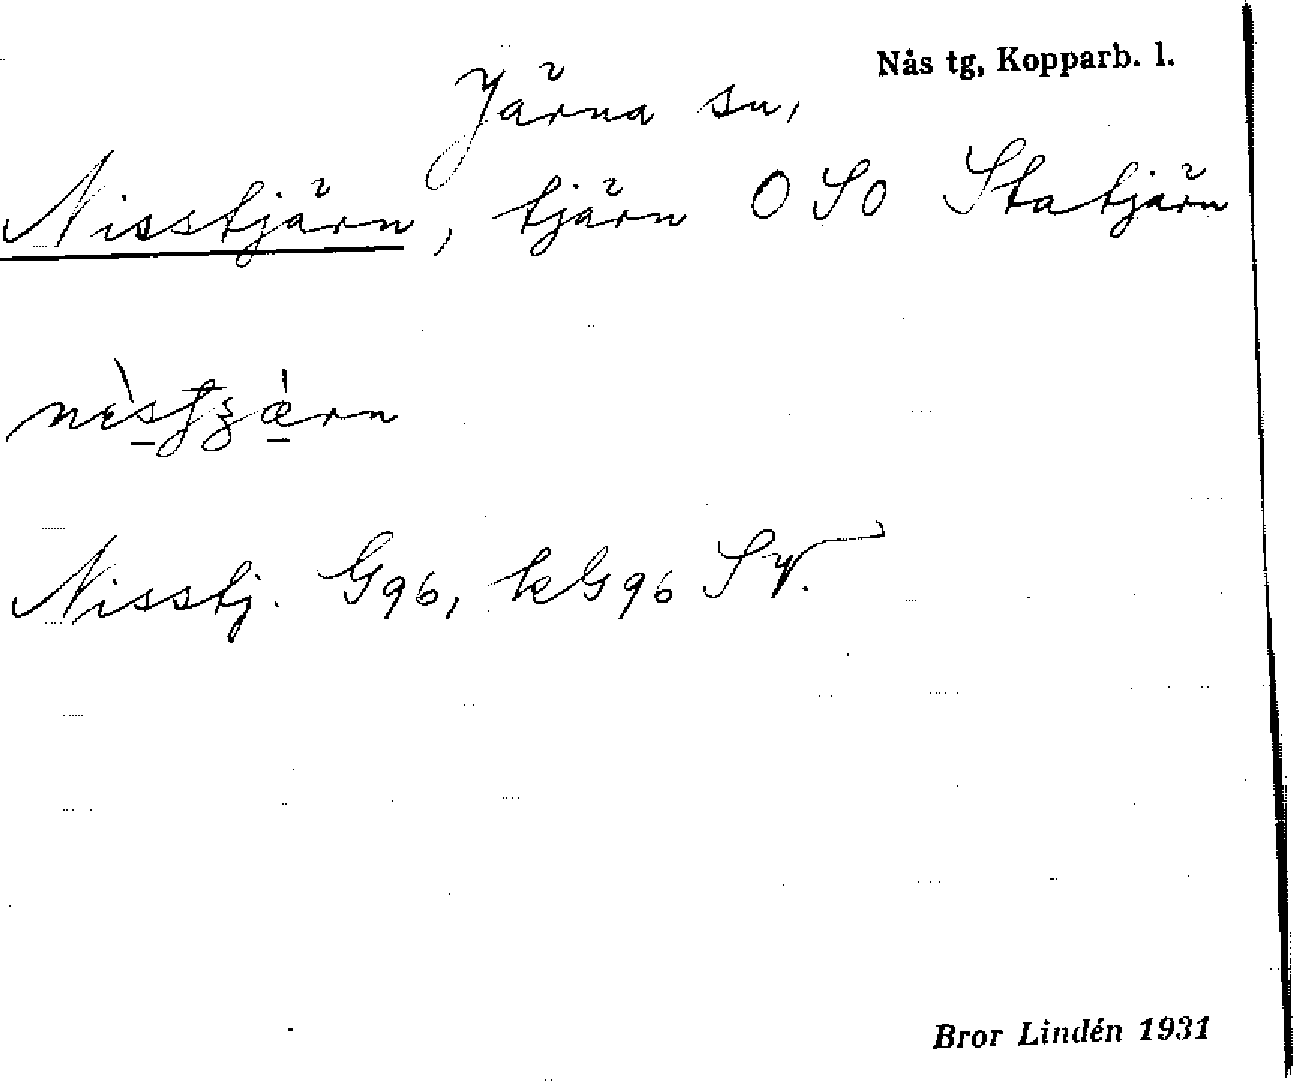 Nås tg, Kopparb. l.
Järna sn,
Nisstjärn, tjärn OSO Statjärn
Nisstj. G96, kG96 SV.
Bror Lindén 1931